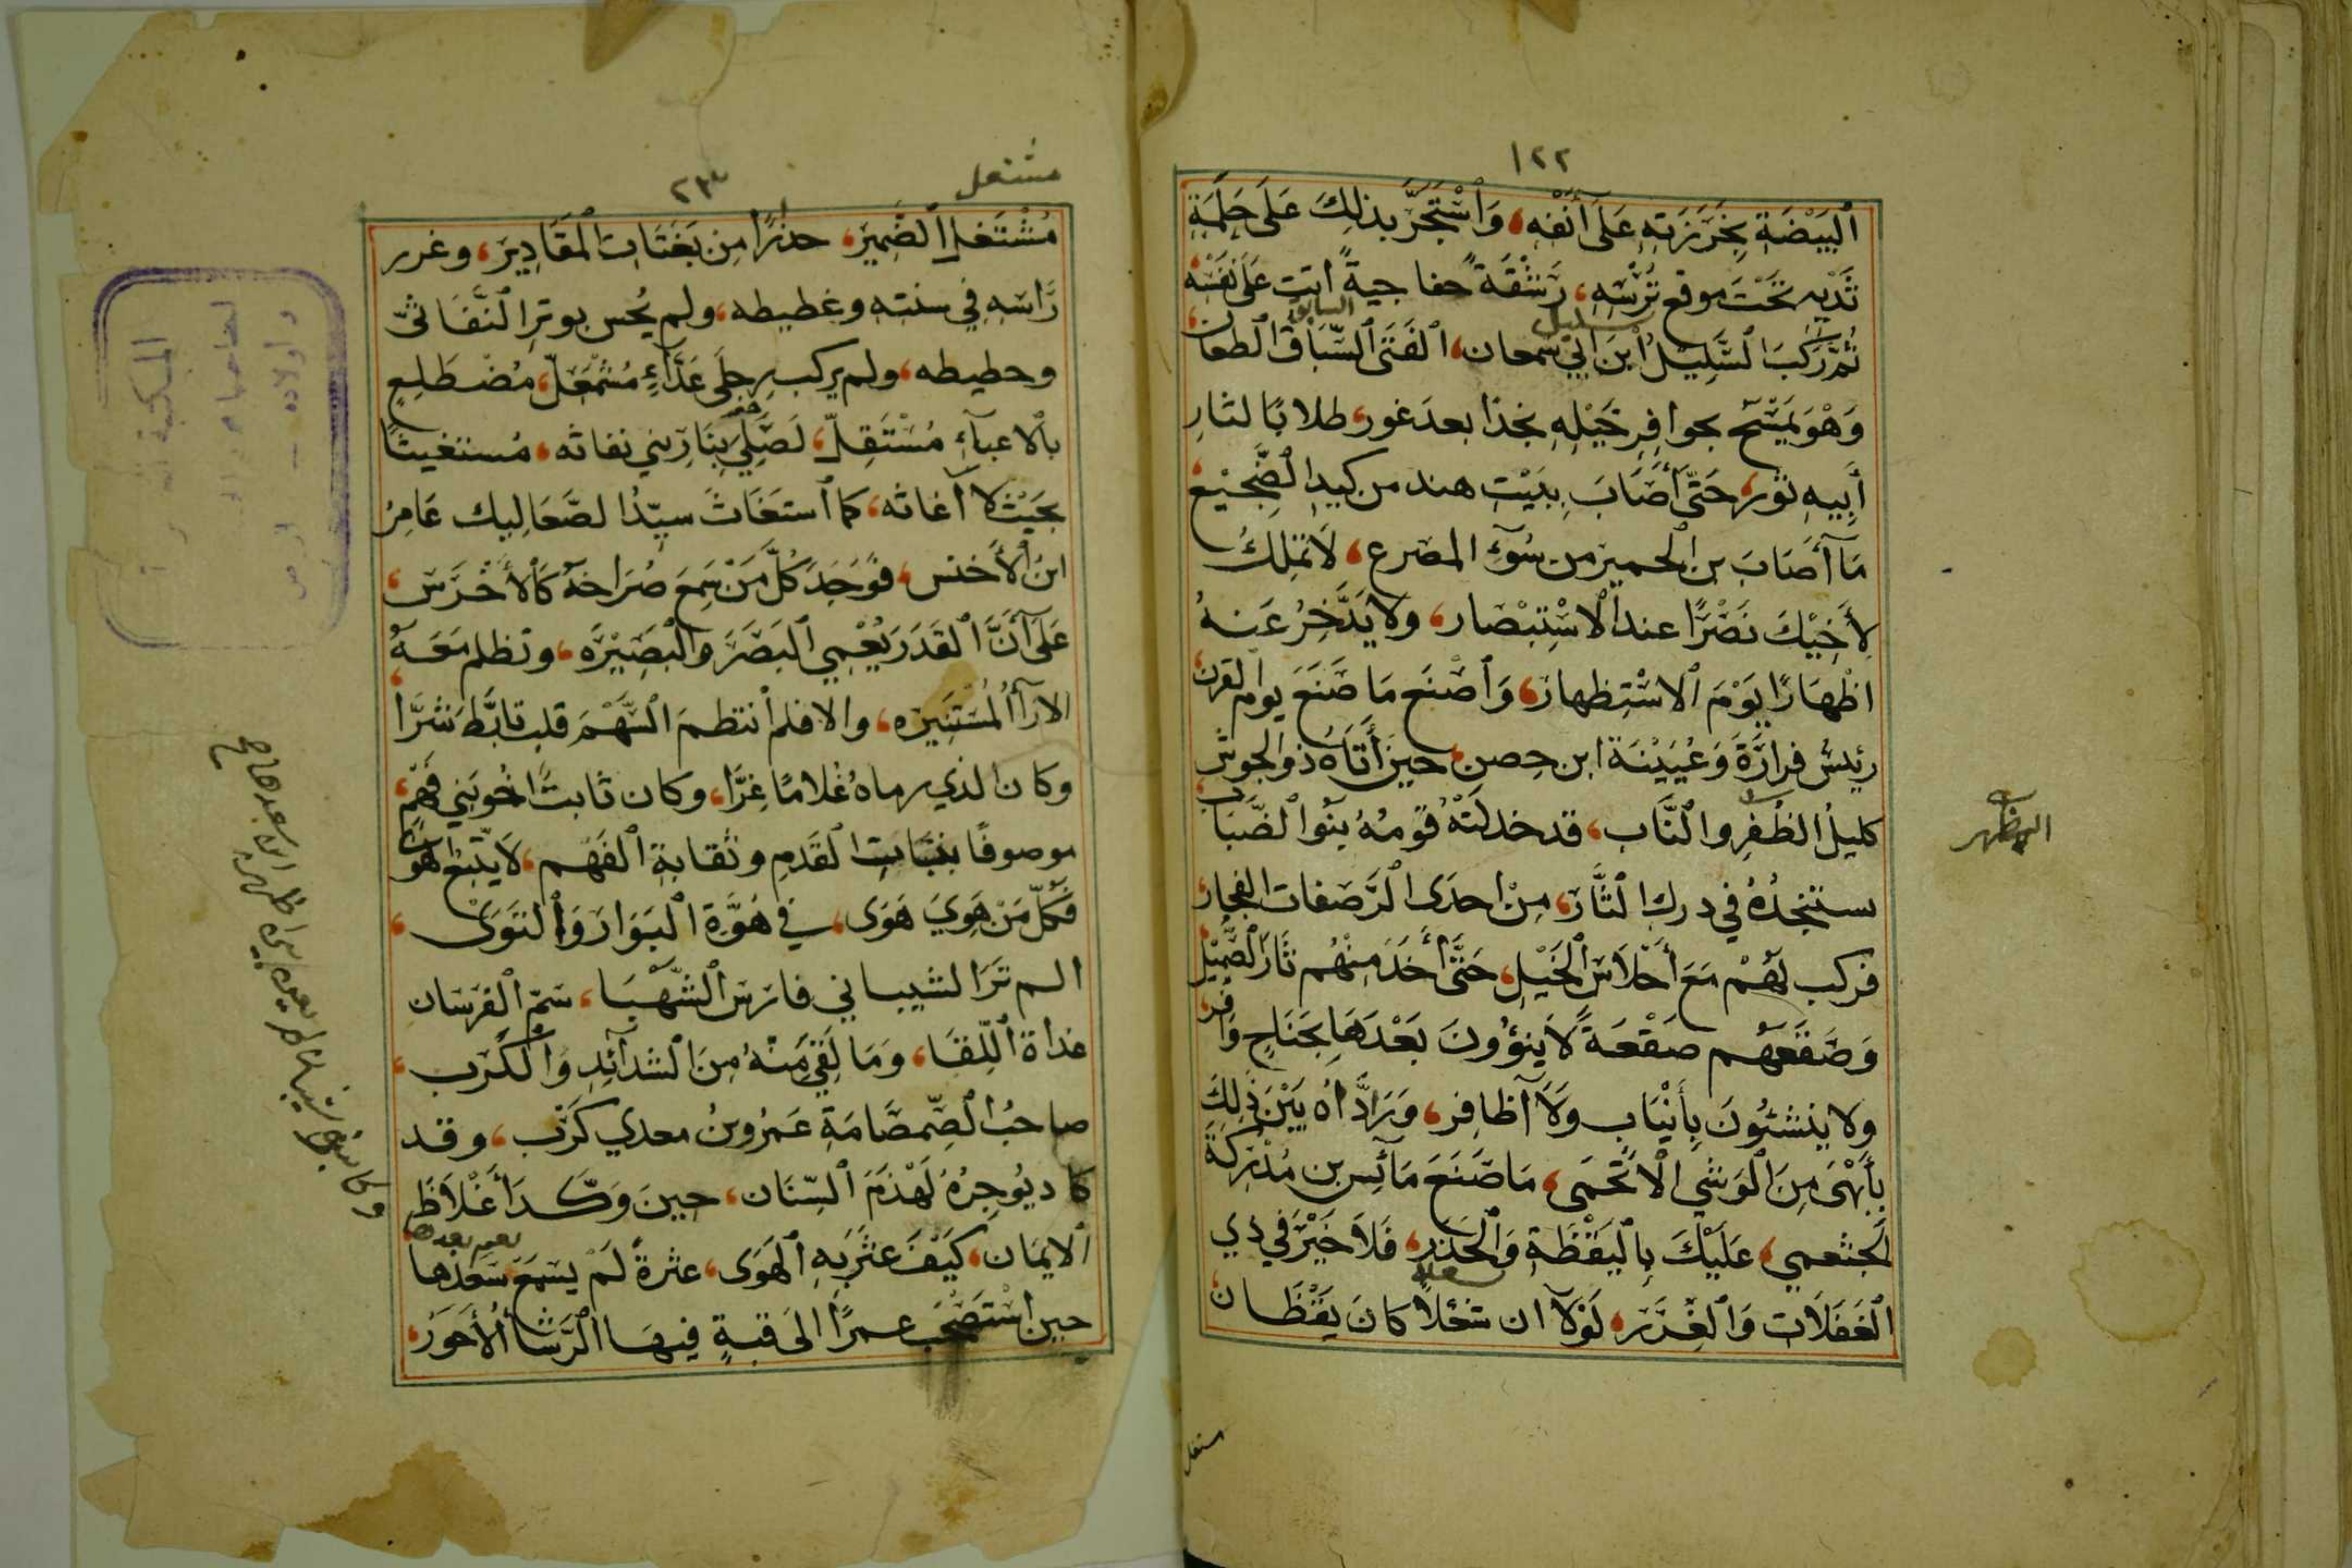 ١٢٢
ٱلْبَيْضَةِ بِخَرَزَتِهِ عَلَى أَنْفِهِ، وَٱسْتَجَرَّ بذلِكَ عَلَى حَلَمَةِ
ثَدْيِهِ تَحْتَ موقع تُرْسِهِ، رَشْقَةً خفاجيةً اتت عَلَى نَفْسِهْ
ثُمَّ رَكِبَ ٱلسَّلِيلُ ٱبْنَ ابي سمعان، ٱلفَتَى ٱلسَّبَّاقُ ٱلطعان
السابق
وَهْوَ يَمْسَح بحوافِرِ خَيْلِهِ نجدًا بعدَ غور، طلابًا لثارِ
أَبِيهِ ثور، حَتَّى أَصَابَ بِبَيْتِ هند من كيدِ ٱلضَّجِيْعِ
مَآ أَصَابَ بن ٱلحمير من سُوٓءِ المصرع، لَا تملِكُ
لِأَخِيْكَ نَصْرًا عند ٱلاسْتِبْصار، ولا يَدَّخِرُ عَنهُ
اظْهَارًا يَوْمَ ٱلاسْتِظهار، وَٱصْنَع مَا صَنَعَ يوام لقرن
رئيسُ فزارَةَ وَعُيَيْنَة ابن حِصن، حينَ أَتَاهُ ذو الجوشن
كليلُ الظُفرِ والنَّاب، قد خذلتْهُ قَومُهُ بنُوا ٱلضَّبَاب
ستنجدُهُ في درك ٱلثَّار، مِنْ احدَى ٱلرَّصفات الفجار
فركب لَهُمْ مَعَ أَحْلَاسَ ٱلخَيْلِ، حَتَّى أَخَذَ مِنْهُم ثَارَ ٱلصُّمَيْل
وَصَقَعَهُم صَقْعَةً لَا يَنؤُونَ بَعْدَهَا بِجَنَاحٍ وَافر
ولا ينشئُونَ بِأَنْيَابٍ وَلَآ أظافِر، وَرَدَّاهُ بَيْنَ ذَلِكَ
بِأَبْهَى مِنَ ٱلوَشي ٱلَاتحمى، مَا صَنَعَ مَائِس بن مُدْرِكَةَ
الخثعمي، عَلَيْكَ بِٱليَقْظَةِ وَٱلحَذَر، فَلَا خَيْرَ في ذي
ٱلغَفَلَات وَٱلغِرَر، لَوْلَآ ان شغلًا كانَ يَقْظَان
مشتعل
٢٣
مُشْتَعَل ٱلضَّمِيْر، حذرًا مِن بَغَتَاتِ ٱلمَقَادِيْر، وغرر
رَّاسَهِ فِي سنتِهِ وغطيطه، ولم يُحس بوترِ ٱلنَّفَاثُ
وحطيطه، ولم يركب رجلَى عَدَّآءٍ مُشْمَعِلّ، مُضْطَلِعٍ
بٱلاعبآءِ مُسْتَقِلّ، لَصُلِيَ بِنَارِ بني نفاثه، مُستغيثًا
بحَيْثُ لا آغاثه، كما ٱستغَاثَ سيّدُ الصَّعَاليك عَامِرُ
ابنُ ٱلأَخنس، فوَجَدَ كُلَّ مَنْ سَمِعَ صُرَاخهُ كَٱلأَخْرَس،
عَلَى أَنَّ ٱلقَدَرَ يُعْمِي ٱلبَصَرَ وَٱلْبَصِيْرَه، وتظلم مَعَهُ
الارآٱلمُسْتَنِيْرَه، والا فلم أنتظمَ ٱلسَّهْمَ قلب تابَّطَ شَرَّا
وكان الذي رماهُ غُلامًا غِرًّا، وكان ثابتُ اخوبَني فَهْم،
موصوفًا بثبَاتِ ٱلقَدَمِ وثقابةِ ٱلفَهم، لَا يتَّبع هون
فَكُلّ مَنْ هَوِيَ هَوَى، فِي هُوَّةِ ٱلبَوَارَ وَٱلتَوَى،
الم تَرَ الشيباني فارسَ ٱلشَّهْبَا، سَمّ ٱلفرسَان
غداة ٱللِّقَا، وَمَا لَقِيَ مَنْهُ مِنَ ٱلشدآئِدِ وَٱلكَرْب،
صاحبُ ٱلصِّمصَامَةِ عَمرُوبنُ معدي كَرب، وقد
كاد يُوجِرُهُ لَهْذَمَ ٱلسّنَان، حينَ وَكَّدَ أَغْلَاظَ
ٱلايمَان، كَيْفَ عثَرَ بِهِ ٱلهَوَى، عثرةً لَمْ يسمَعْ سَعدها
حين اسْتَصْحَبَ عمرًا الى قبةٍ فيها ٱلرَّشَأُ ٱلأَحوَرُ،